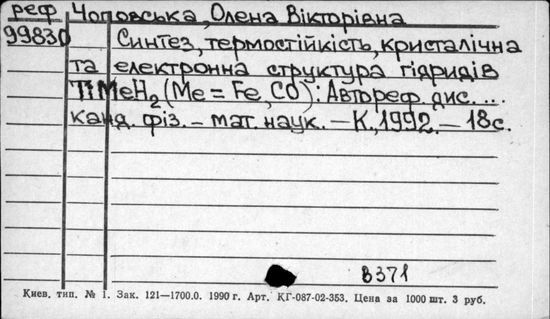 реф Чоповська, Олена Вікторівна
99830 Синтез, термостійкість, кристалічна
та електронна структура гідридів
TiMeH₂ (Me = Fe, Co): Автореф. дис. ...
канд. фіз. – мат. наук. – К., 1992. – 18с.
В371
Киев. тип. № 1. Зак. 121—1700.0. 1990 г. Арт. КГ-087-02-353. Цена за 1000 шт. 3 руб.